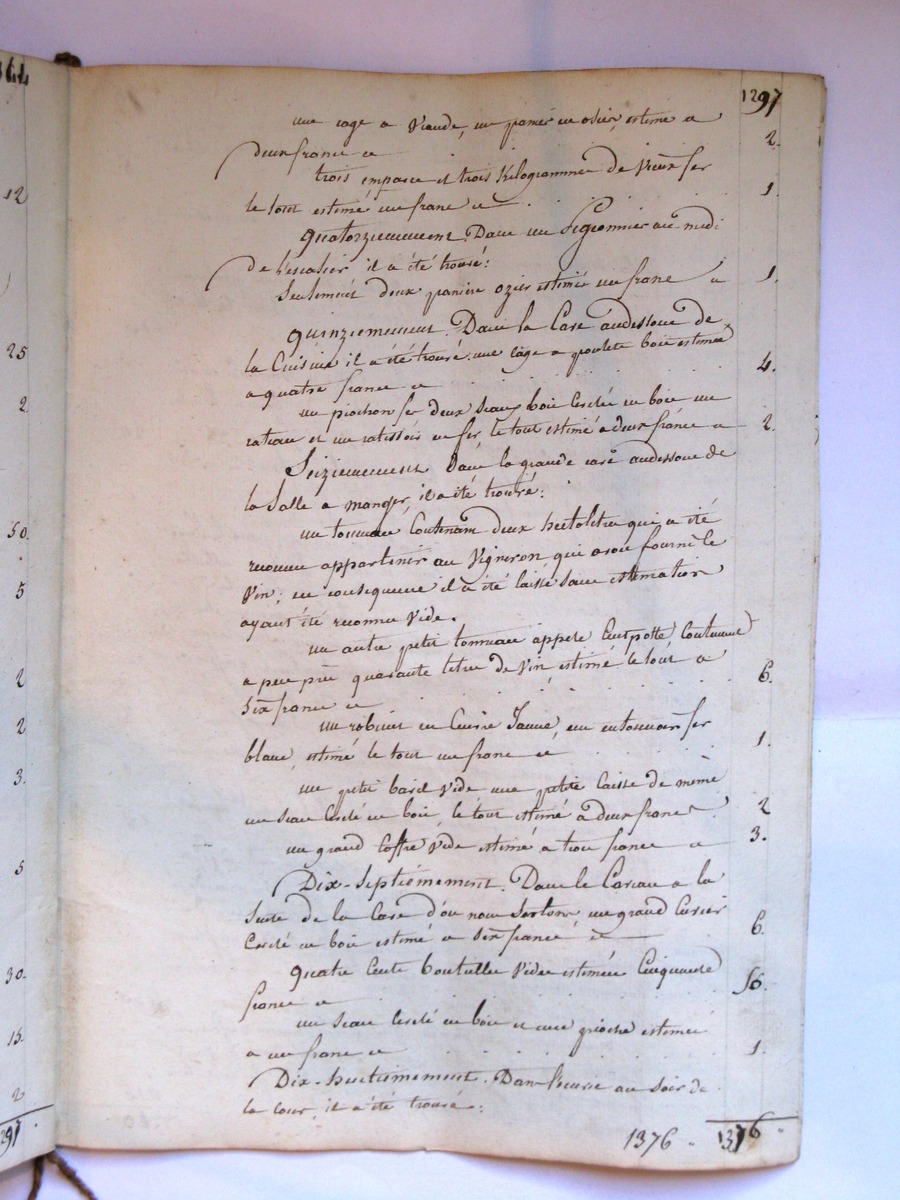 364
12
25
2
50.
5
2
2
3.
5
30.
15.
2
297.
1297
une cage a viande, un panier en osier, estimé a
deux franc ci . . . 2.
trois empare et trois Kilogrammes de vieux fer
le tout estimé un franc ci . 1.
Quatorziemement. Dans un Pigeonnier au midi
de l'escalier il a été trouvé:
Seulement deux paniers ozier estimés un franc ci 1.
Quinziemement. Dans la Cave audessous de
la Cuisine il a été trouvé. une cage a poulets bois estimée
a quatre francs ci . . . 4.
un piochon fer deux seaux bois cerclés en bois un
rateau et un ratissois en fer, le tout estimé a deux francs ci 2.
Seiziemement Dans la grande cave audessous de
la Salle a manger, il a été trouvé:
un tonneau Contenant deux hectolitres qui a été
reconnu appartenir au Vigneron qui a son fourni le
Vin; en consequence il a été laissé sans estimation
ayant été reconnu Vide.
un autre petit tonneau appelé Centpotte, Contenant
a peu près quarante litres de Vin estimé le tout a
Six francs ci . . . 6.
un robinet en Cuivre Jaune, un entonnoir fer
blanc, estimé le tout un franc ci . . . 1.
un petit baril Vide une petite Caisse de même
un Seau Cerclé en bois, le tout estimé a deux francs 2
un grand Coffre Vide estimé a trois francs ci 3.
Dix-Septiémement. Dans le Caveau a la
Suite de la Cave d'ou nous Sortons, un grand Cuvier
Cerclé en bois estimé a six francs ci 6.
Quatre Cents bouteilles Vides estimées Cinquante
francs ci . . . 50.
un Seau Cerclé en bois et une pioche estimés
a un franc ci . . . 1.
Dix-huitiémement. Dans l'ecurie au Soir de
la Cour, il a été trouvé:
1376 „ 1376 „